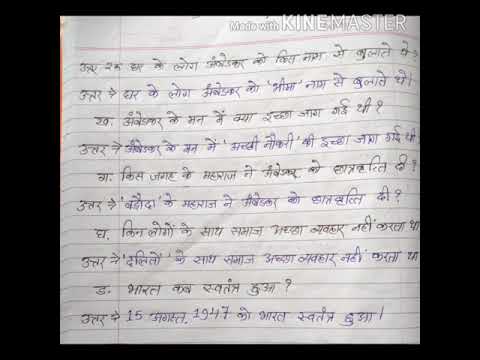 Made with KINEMASTER
उत्तर २क घर के लोग अंबेडकर को किस नाम से बुलाते थे?
उत्तर → घर के लोग अंबेडकर को 'भीमा' नाम से बुलाते थे।
ख. अंबेडकर के मन में क्या इच्छा जाग गई थी?
उत्तर → अंबेडकर के मन में 'अच्छी नौकरी' की इच्छा जाग गई थी
ग. किस जगह के महाराज ने अंबेडकर को छात्रवृत्ति दी?
उत्तर → 'बड़ौदा' के महाराज ने अंबेडकर को छात्रवृत्ति दी?
घ. किन लोगों के साथ समाज अच्छा व्यवहार नहीं करता था
उत्तर → 'दलितों' के साथ समाज अच्छा व्यवहार नहीं करता था
ङ. भारत कब स्वतंत्र हुआ?
उत्तर → 15 अगस्त, 1947 को भारत स्वतंत्र हुआ।